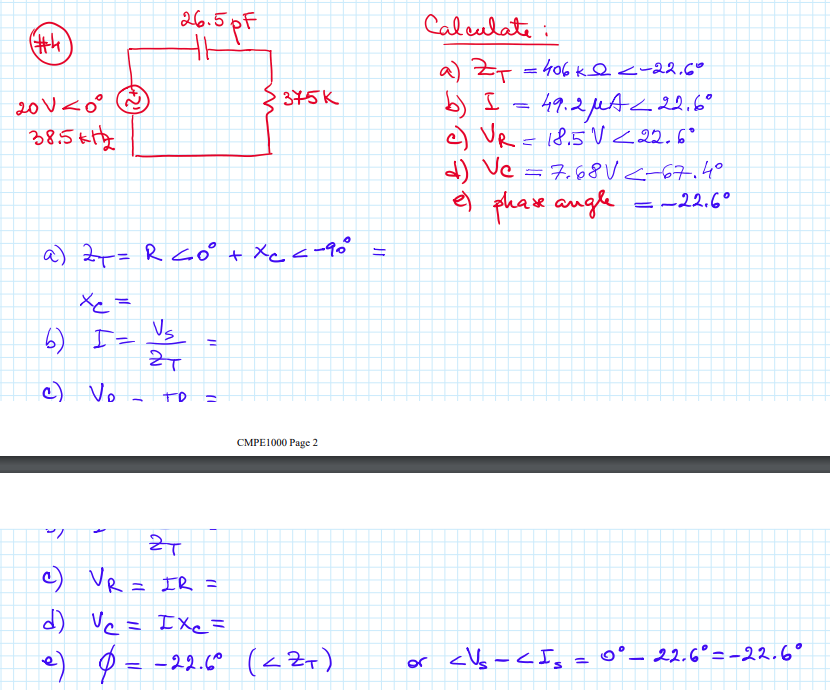 #4
26.5 pF
20V∠0°
38.5 kHz
375K
Calculate :
a) Z_T = 406 kΩ ∠-22.6°
b) I = 49.2 μA∠ 22.6°
c) V_R = 18.5 V ∠22.6°
d) V_C = 7.68V ∠-67.4°
e) phase angle = -22.6°
a) Z_T = R ∠0° + X_C ∠-90° =
X_C =
b) I = V_S / Z_T =
c) V_R = IR =
CMPE1000 Page 2
Z_T
c) V_R = IR =
d) V_C = IX_C =
e) φ = -22.6° (∠Z_T) or ∠V_S - ∠I_S = 0° - 22.6° = -22.6°